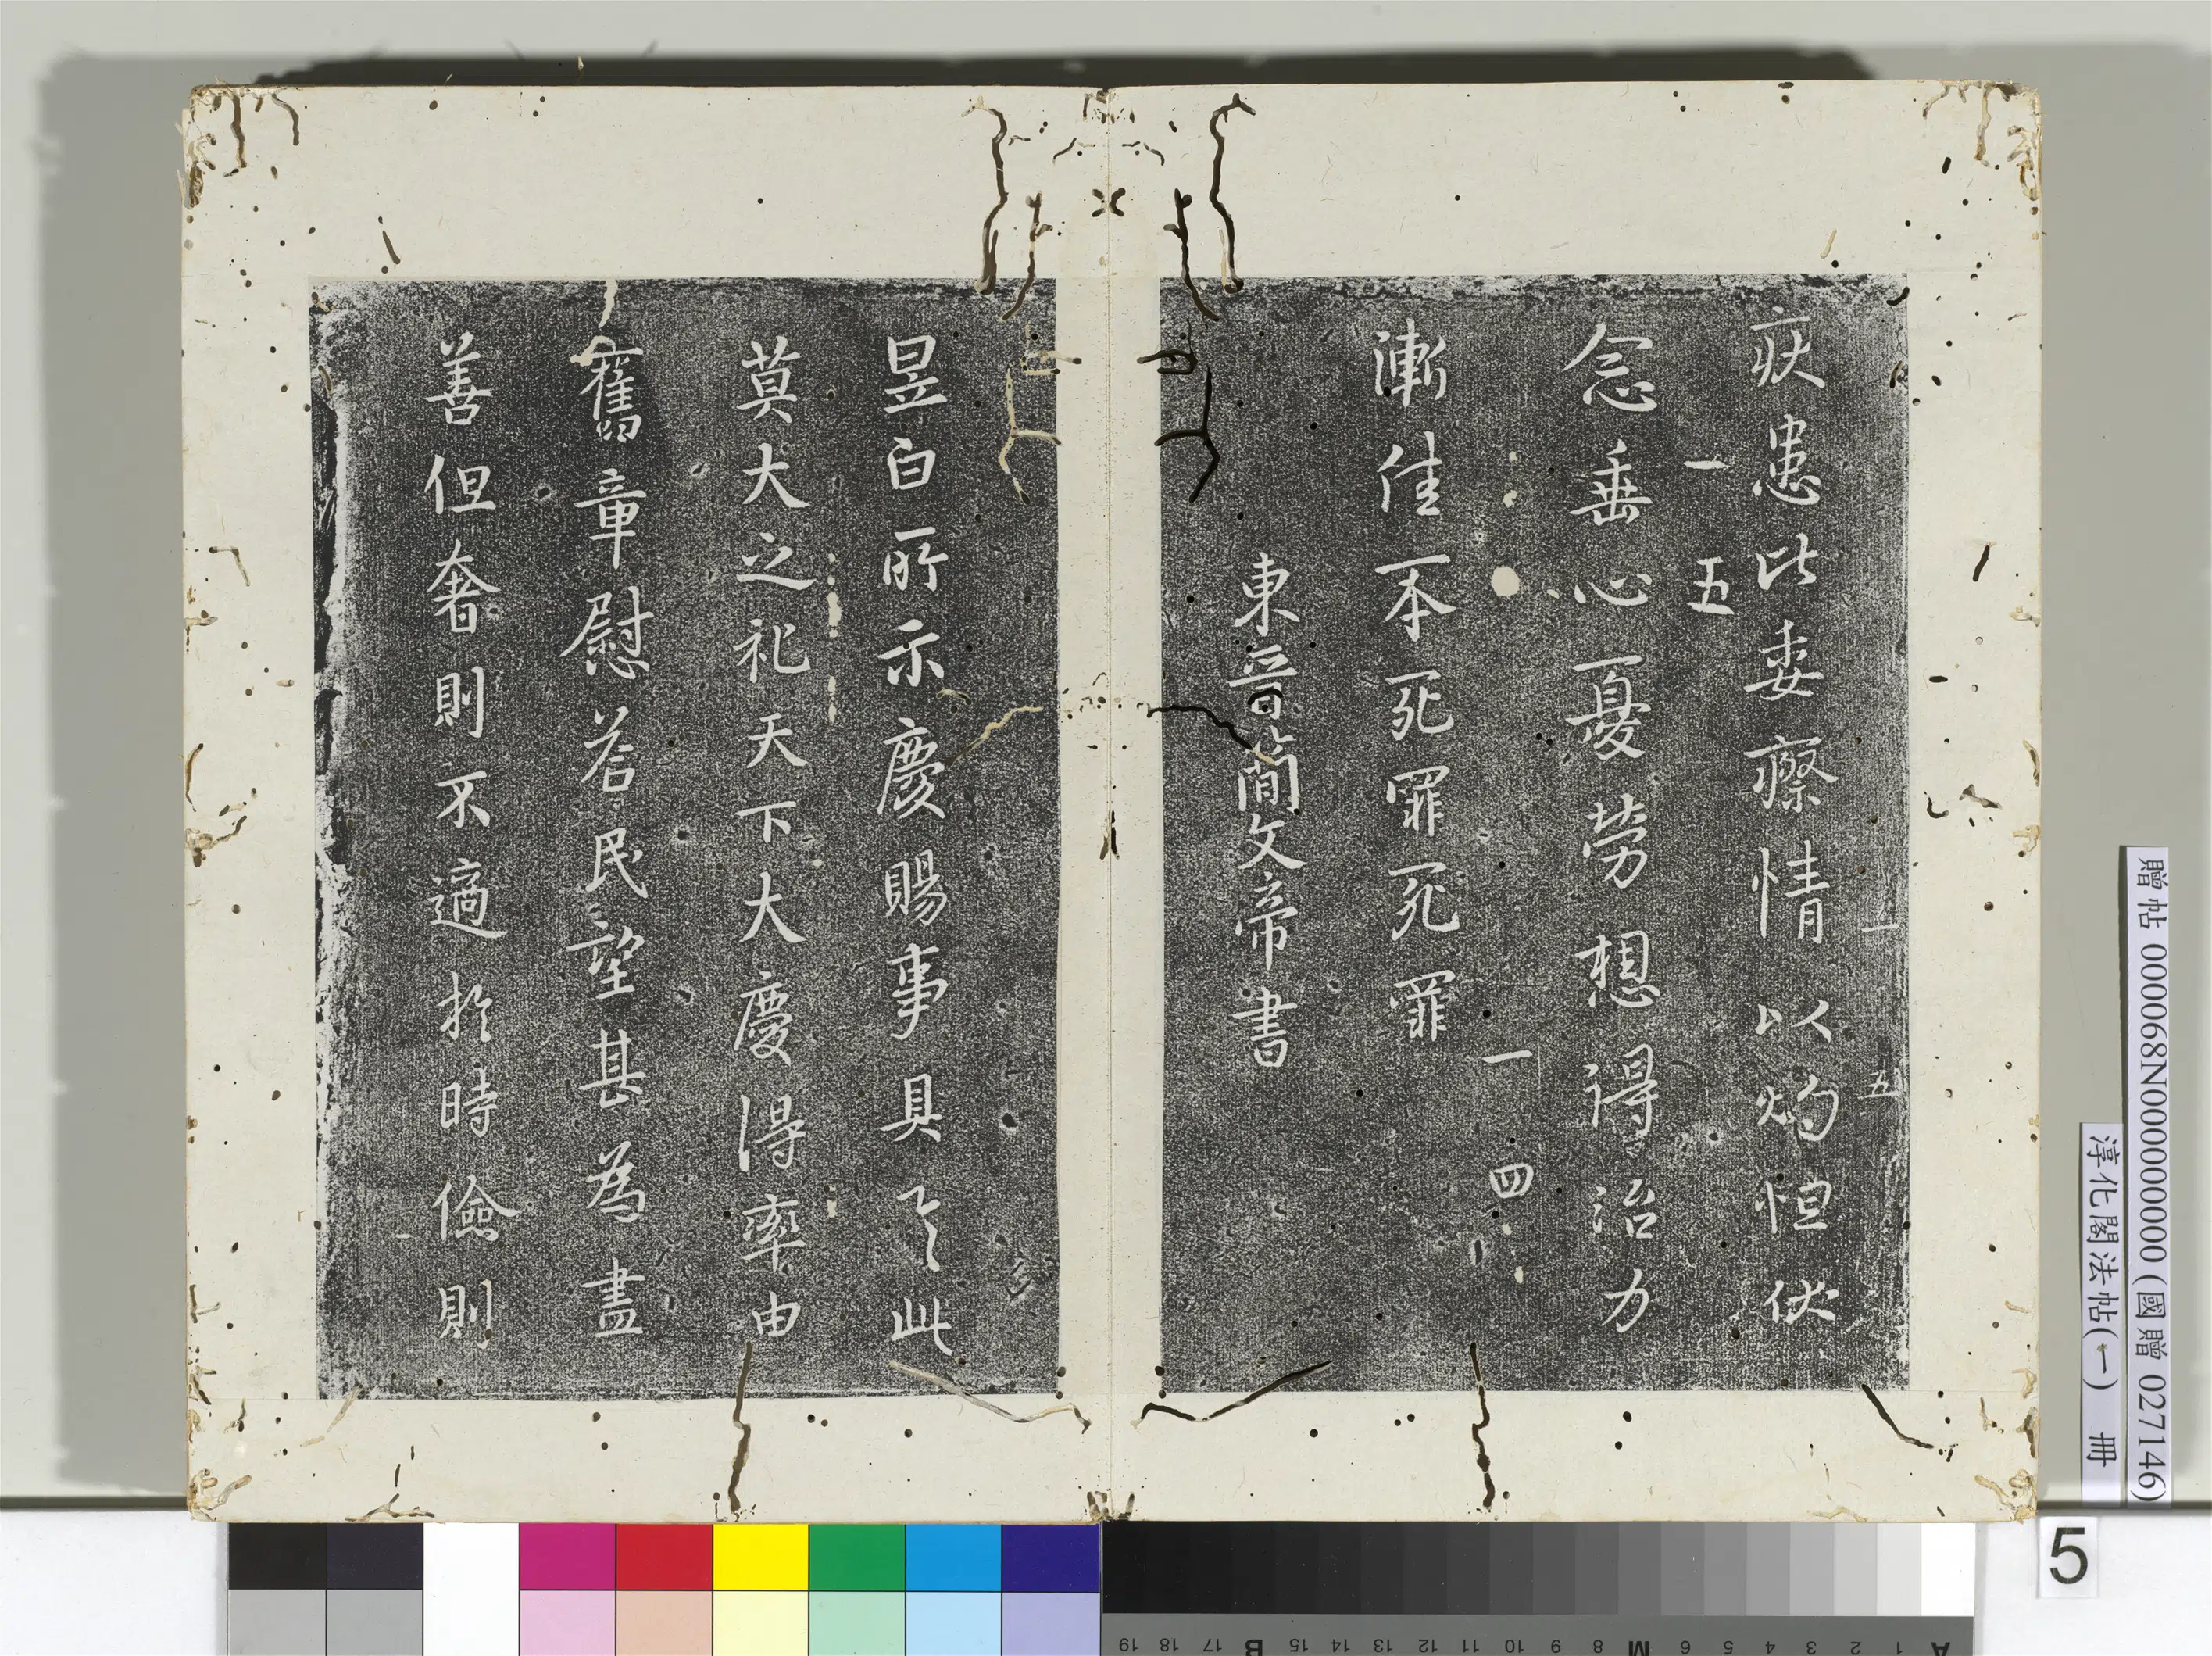 疢患比委瘵情以灼怛伏
一五
念垂心憂勞想得治力
一四
漸佳本死罪死罪
東晉簡文帝書
昱白所示慶賜事具尒此
莫大之礼天下大慶得率由
舊章慰荅民望甚為盡
善但奢則不適於時儉則
一五
贈帖 000068N000000000 (國贈 027146)
淳化閣法帖(一) 冊
5
A 1 2 3 4 5 6 M 8 9 10 11 12 13 14 15 B 17 18 19